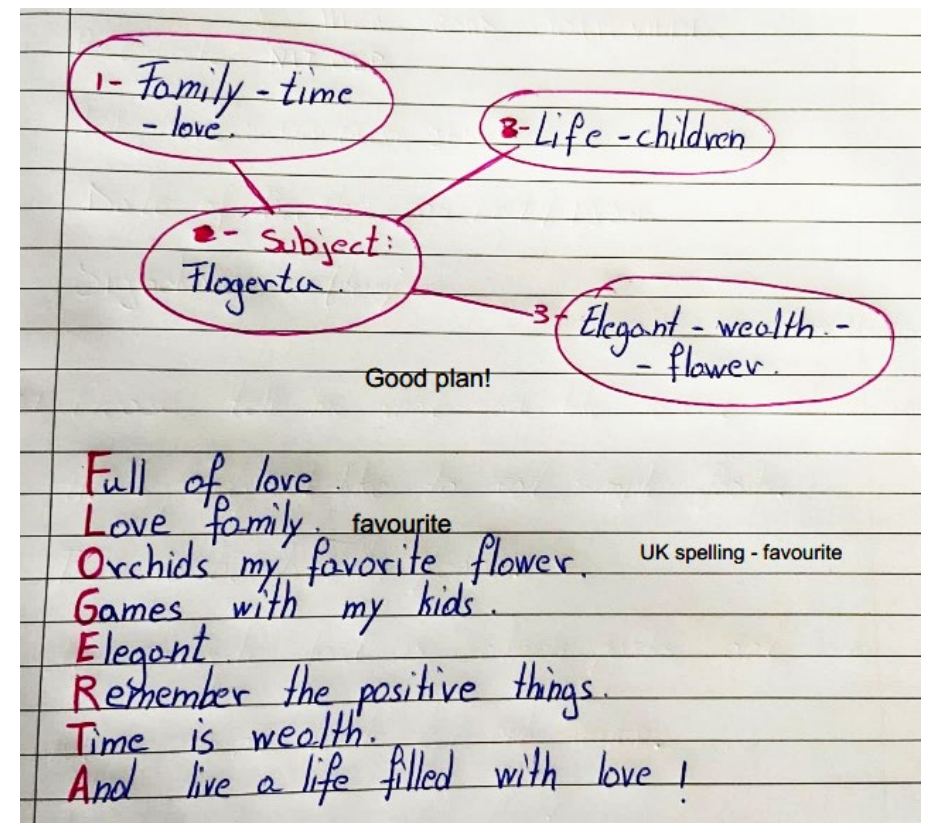 1- Family - time
- love.
2- Life - children
2- Subject:
Flogerta.
3- Elegant - wealth. -
- flower.
Good plan!
Full of love.
Love family. favourite
Orchids my favorite flower.
UK spelling - favourite
Games with my kids.
Elegant
Remember the positive things.
Time is wealth.
And live a life filled with love!